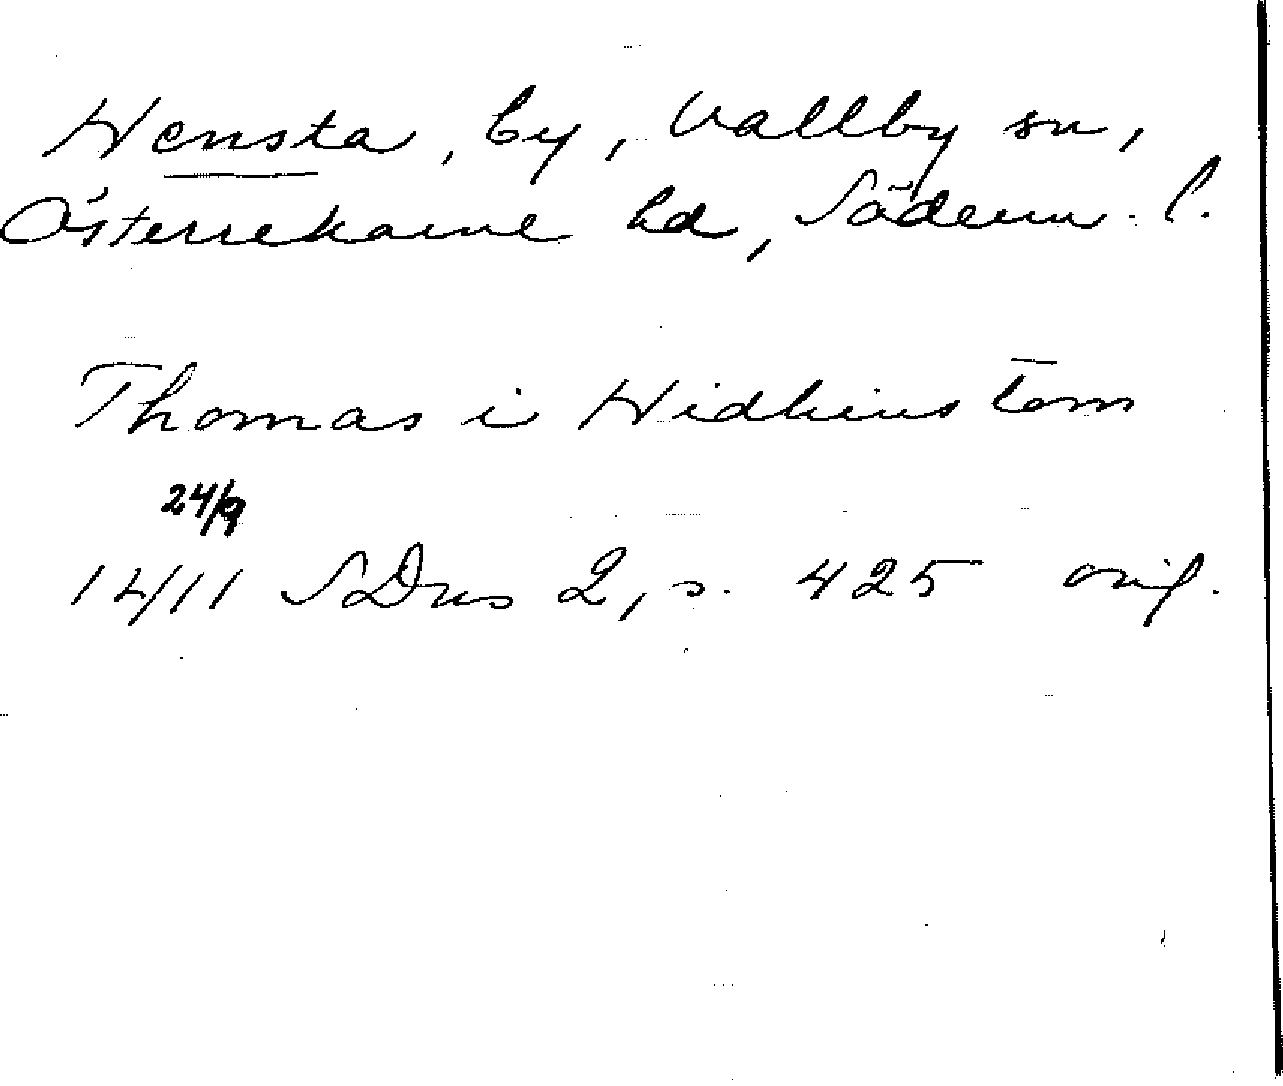 Hensta, by, Vallby sn,
Österrekarne hd, Söderm. l.
Thomas i Hidhins tom
24/9
1411 SDns 2, s. 425 orig.